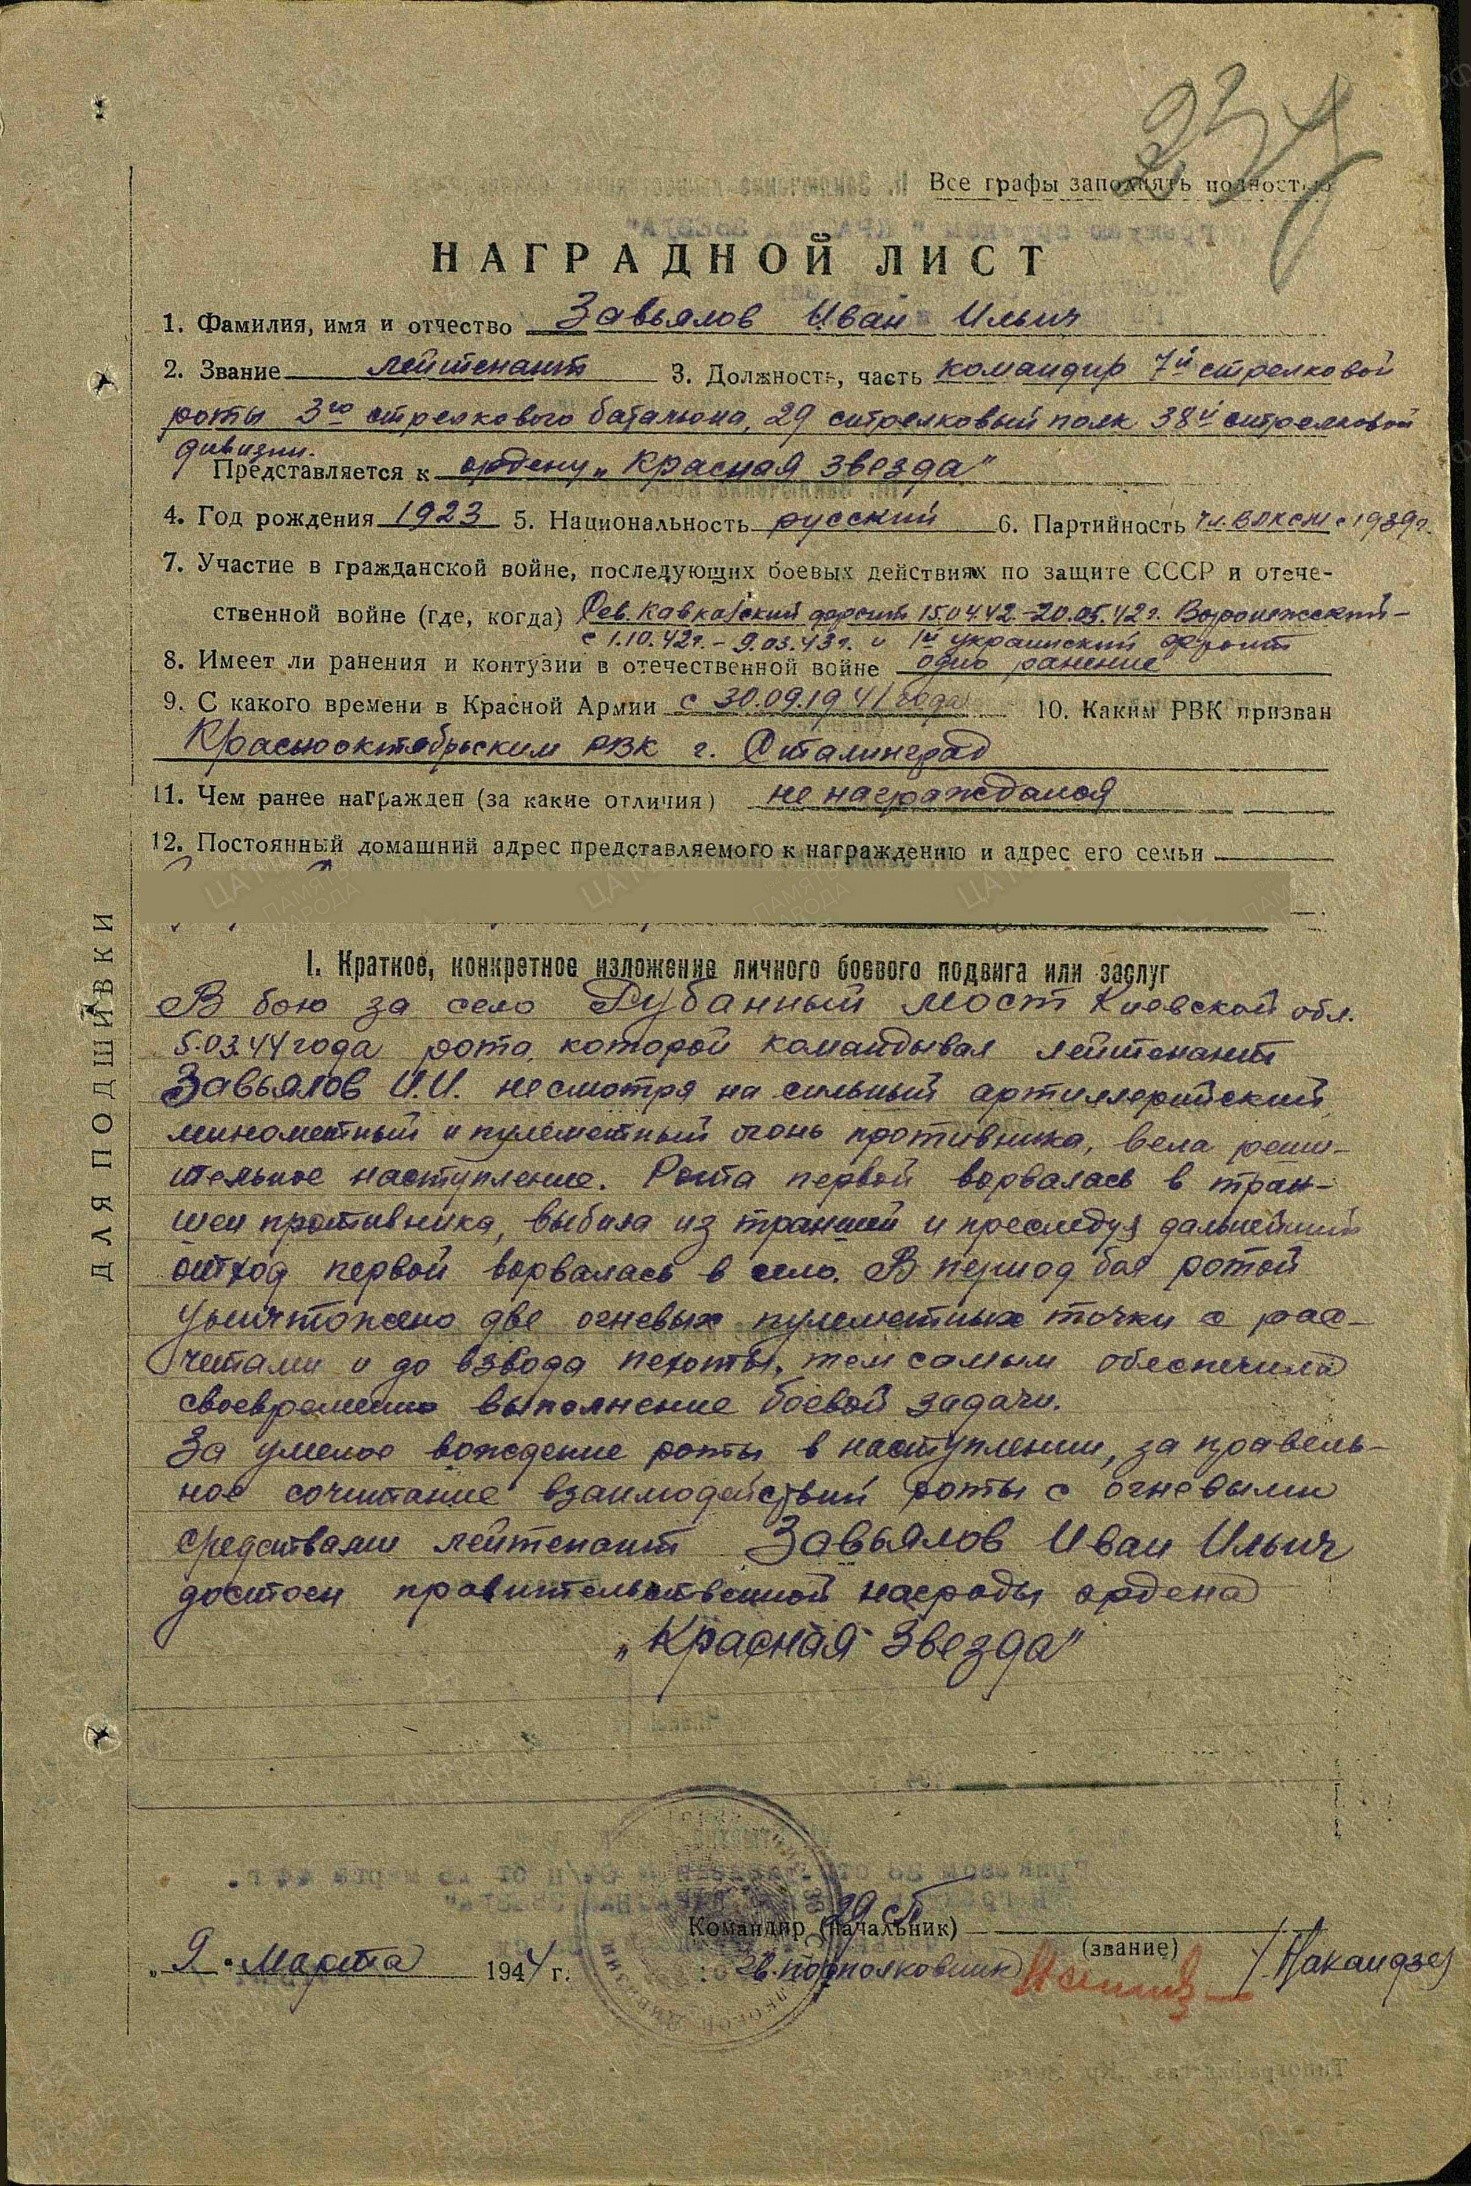 Все графы заполнять полностью
НАГРАДНОЙ ЛИСТ
1. Фамилия, имя и отчество Завьялов Иван Ильич
2. Звание лейтенант 3. Должность, часть командир 7й стрелковой
роты 3го стрелкового баталиона, 29 стрелковый полк 38й стрелковой
дивизии.
Представляется к ордену „Красная Звезда"
4. Год рождения 1923 5. Национальность русский 6. Партийность чл. ВЛКСМ с 1939г.
7. Участие в гражданской войне, последующих боевых действиях по защите СССР и отече-
ственной войне (где, когда) Сев. Кавказский фронт 15.04.42-20.05.42г. Воронежский-
с 1.10.42г. - 9.03.43г. и 1й украинский фронт
8. Имеет ли ранения и контузии в отечественной войне одно ранение
9. С какого времени в Красной Армии с 30.09.1941 года 10. Каким РВК призван
Краснооктябрьским РВК г. Сталинград
11. Чем ранее награжден (за какие отличия) не награждался
12. Постоянный домашний адрес представляемого к награждению и адрес его семьи
ДЛЯ ПОДШИВКИ
I. Краткое, конкретное изложение личного боевого подвига или заслуг
В бою за село Рубанный мост Киевской обл.
5.03.44 года рота, которой командывал лейтенант
Завьялов И.И. несмотря на сильный артиллерийский,
минометный и пулеметный огонь противника, вела реши-
тельное наступление. Рота первой ворвалась в тран-
шеи противника, выбила из траншей и преследуя дальнейший
отход первой ворвалась в село. В период боя ротой
уничтожено две огневых пулеметных точки с рас-
четами и до взвода пехоты, тем самым обеспечила
своевременно выполнение боевой задачи.
За умелое вождение роты в наступлении, за правель-
ное сочетание взаимодействий роты с огневыми
средствами лейтенант Завьялов Иван Ильич
достоен правительственной награды ордена
„Красная Звезда"
Командир (начальник) 29 СП
(звание)
„9" Марта 1944 г. гв. подполковник